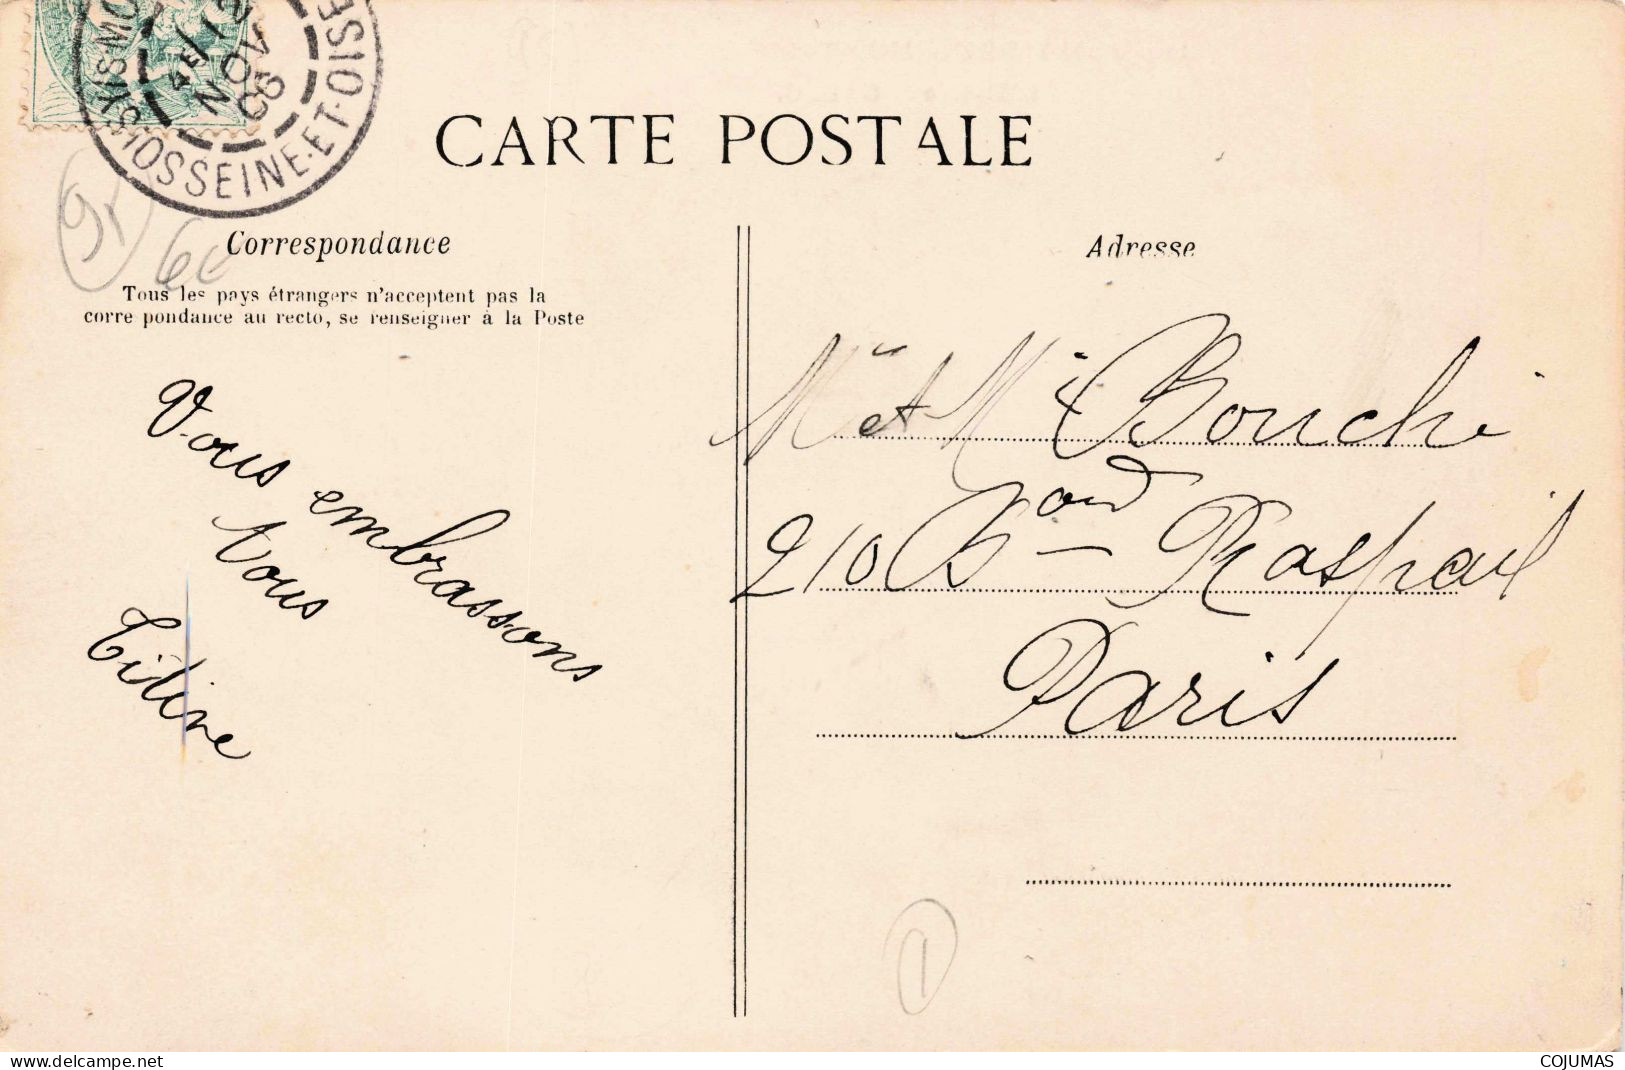 4E / 12
NOV
06
SEINE-ET-OISE
CARTE POSTALE
95
60
Correspondance
Tous les pays étrangers n'acceptent pas la
corre pondance au recto, se renseigner à la Poste
Vous embrassons
tous
Titine
Adresse
Mr et Me Bouchi
210 Bard Raspail
Paris
1
www.delcampe.net
COJUMAS